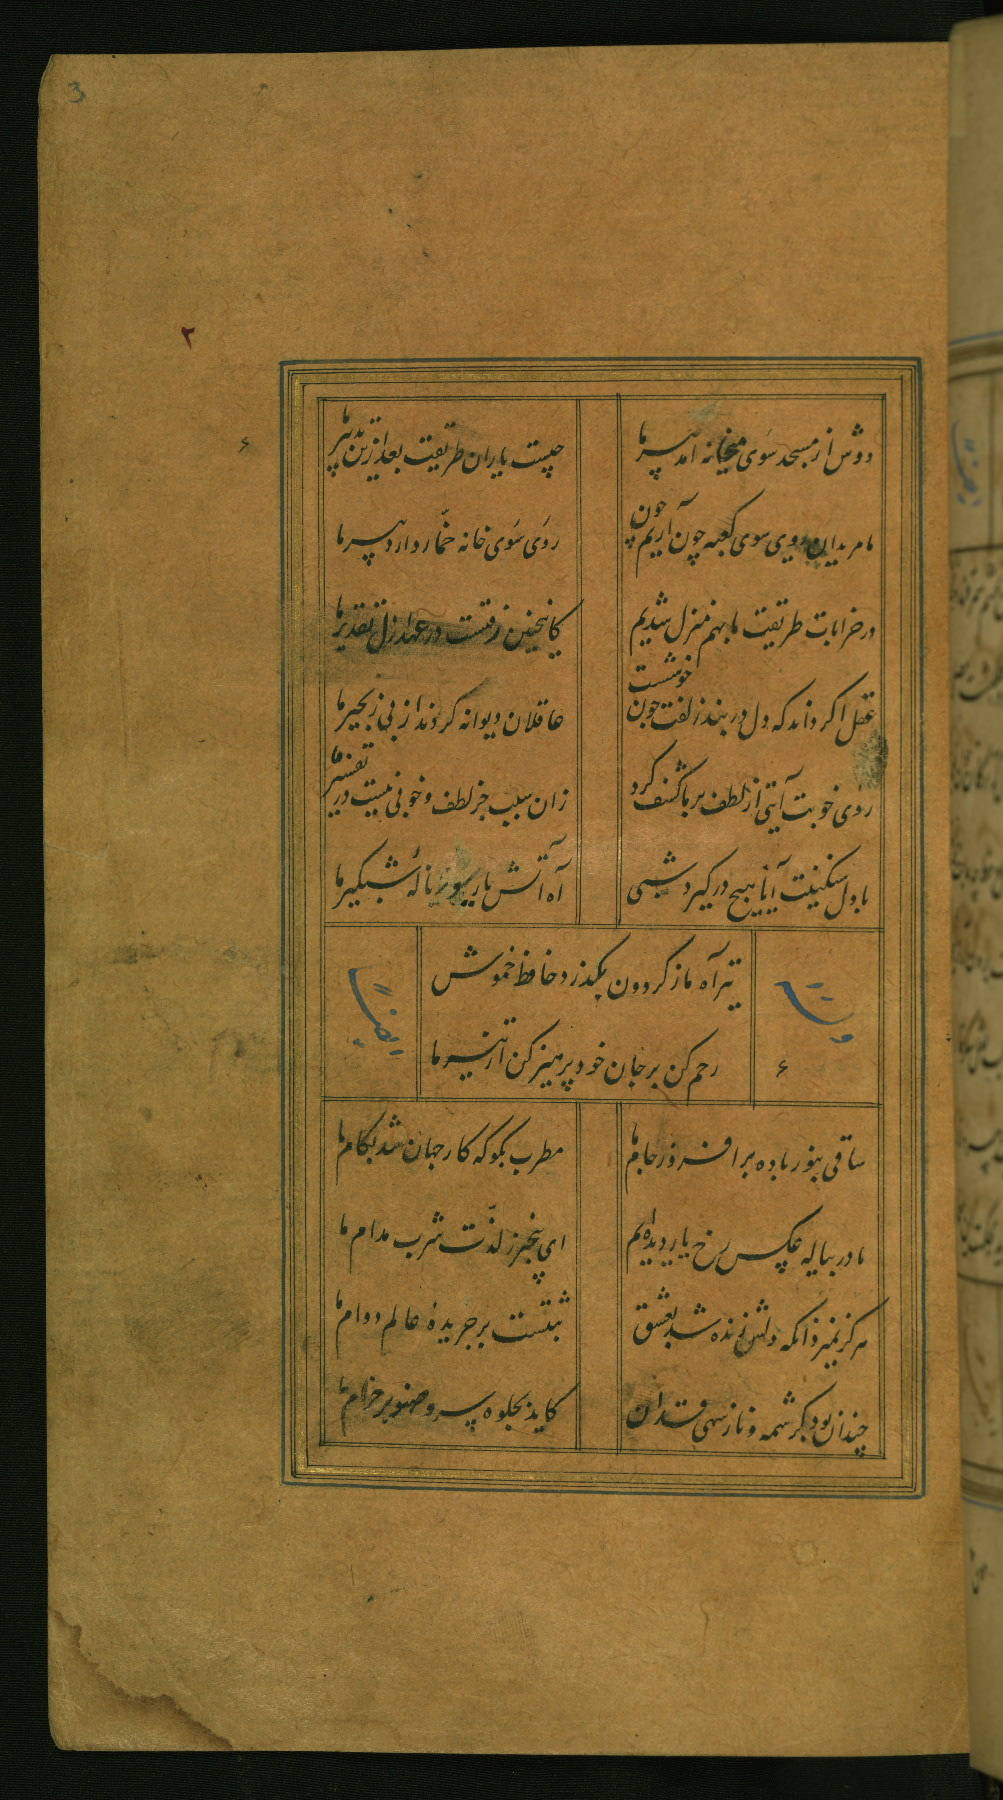 3
۲
دوش از مسجد سوی میخانه آمد پیر ما
چیست یاران طریقت بعد ازین تدبیر ما
ما مریدان روی سوی کعبه چون آریم چون
روی سوی خانه خمّار دارد پیر ما
در خرابات طریقت ما بهم منزل شدیم
کاینچنین رفتست در عهد ازل تقدیر ما
عقل اگر داند که دل در بند زلفت چون خوشست
عاقلان دیوانه گردند از پی زنجیر ما
روی خوبت آیتی از لطف بر ما کشف کرد
زان سبب جز لطف و خوبی نیست در تفسیر ما
با دل سنگینت آیا هیچ در گیرد شبی
آه آتش بار و سوز نالهٔ شبگیر ما
تیر آه ما ز گردون بگذرد حافظ خموش
رحم کن بر جان خود پرهیز کن از تیر ما
وله
ایضاً
ساقی بنور باده بر افروز جام ما
مطرب بگو که کار جهان شد بکام ما
ما در پیاله عکس رخ یار دیده‌ایم
ای بیخبر ز لذّت شرب مدام ما
هرگز نمیرد آنکه دلش زنده شد بعشق
ثبتست بر جریدهٔ عالم دوام ما
چندان بود کرشمه و ناز سهی قدان
کاید بجلوه سرو صنوبر خرام ما